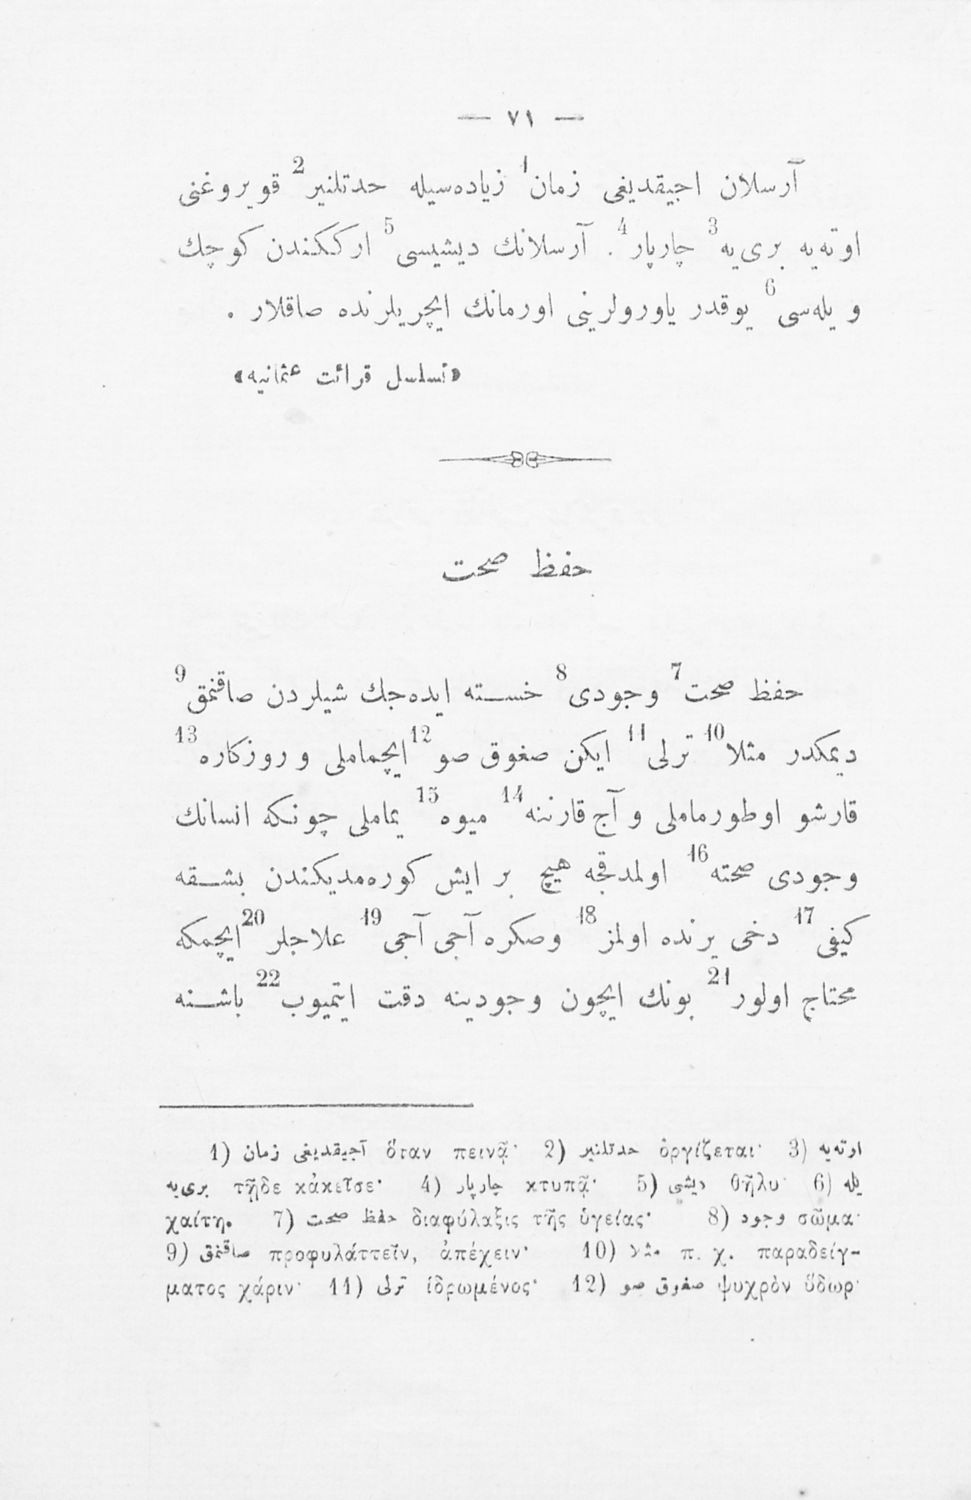 — ٧١ —
آرسلان اجیقدیغی زمان1 زیاده‌سیله حدتلنیر2 قویروغنی
اوته‌یه بری‌یه3 چارپار4 . آرسلانك دیشیسی5 ارككندن كوچك
و یله‌سی6 یوقدر یاورولرینی اورمانك ایچریلرنده صاقلار .
«تسلسل قرائت عثمانیه»
حفظ صحت
حفظ صحت7 وجودی8 خسته ایده‌جك شیلردن صاقنمق9
دیمكدر مثلا10 ترلی11 ایكن صغوق صو12 ایچماملی و روزكاره13
قارشو اوطورماملی و آج قارننه14 میوه15 یماملی چونكه انسانك
وجودی صحته16 اولمدقجه هیچ بر ایش كوره‌مدیكندن بشقه
كیفی17 دخی یرنده اولمز18 وصكره آجی آجی19 علاجلر20 ایچمكه
محتاج اولور21 بونك ایچون وجودینه دقت ایتمیوب22 باشنه
1) آجیقدیغی زمان ὅταν πεινᾷ· 2) حدتلنیر ὀργίζεται· 3) اوته‌یه
بری‌یه τῇδε κἀκεῖσε· 4) چارپار κτυπᾷ· 5) دیشی θῆλυ· 6) یله
χαίτη. 7) حفظ صحت διαφύλαξις τῆς ὑγείας· 8) وجود σῶμα·
9) صاقنمق προφυλάττεῖν, ἀπέχειν· 10) مثلا π. χ. παραδείγ-
ματος χάριν· 11) ترلی ἱδρωμένος· 12) صغوق صو ψυχρὸν ὕδωρ·